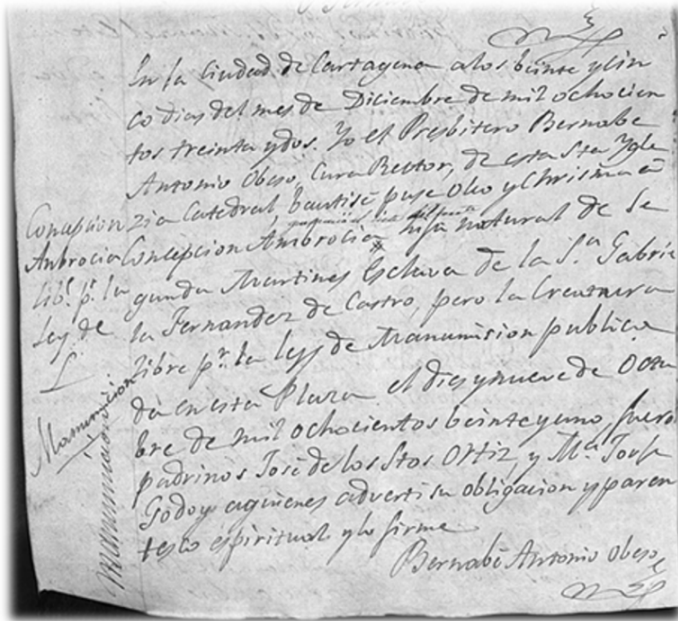 En la Ciudad de Cartagena alos beinte y sin
co dias del mes de Diciembre de mil ochocien
tos treinta ydos. Yo el Presbitero Bernabe
Antonio Obeso, Cura Rector, de esta Sta Ygle
zia Catedral, bautisé puse Oleo y Chrisma à
Concepcion Ambrocia hija natural de Se
gunda Martines Esclava de la Sa. Gabrie
la Fernandez de Castro, pero la Creatura
libre pr. la ley de Manumision publica
da en esta Plaza el dies y nueve de Octu
bre de mil ochocientos beinte y uno, fuero.
padrinos José de los Stos Ortiz, y Ma. Josefa
Godoy aquienes adverti su obligacion y paren
tesco espiritual y lo firme
Bernabé Antonio Obeso
Concepcion
Anbrocia
lib. pr. la
Ley de
L.
Manumicion
Manumicion